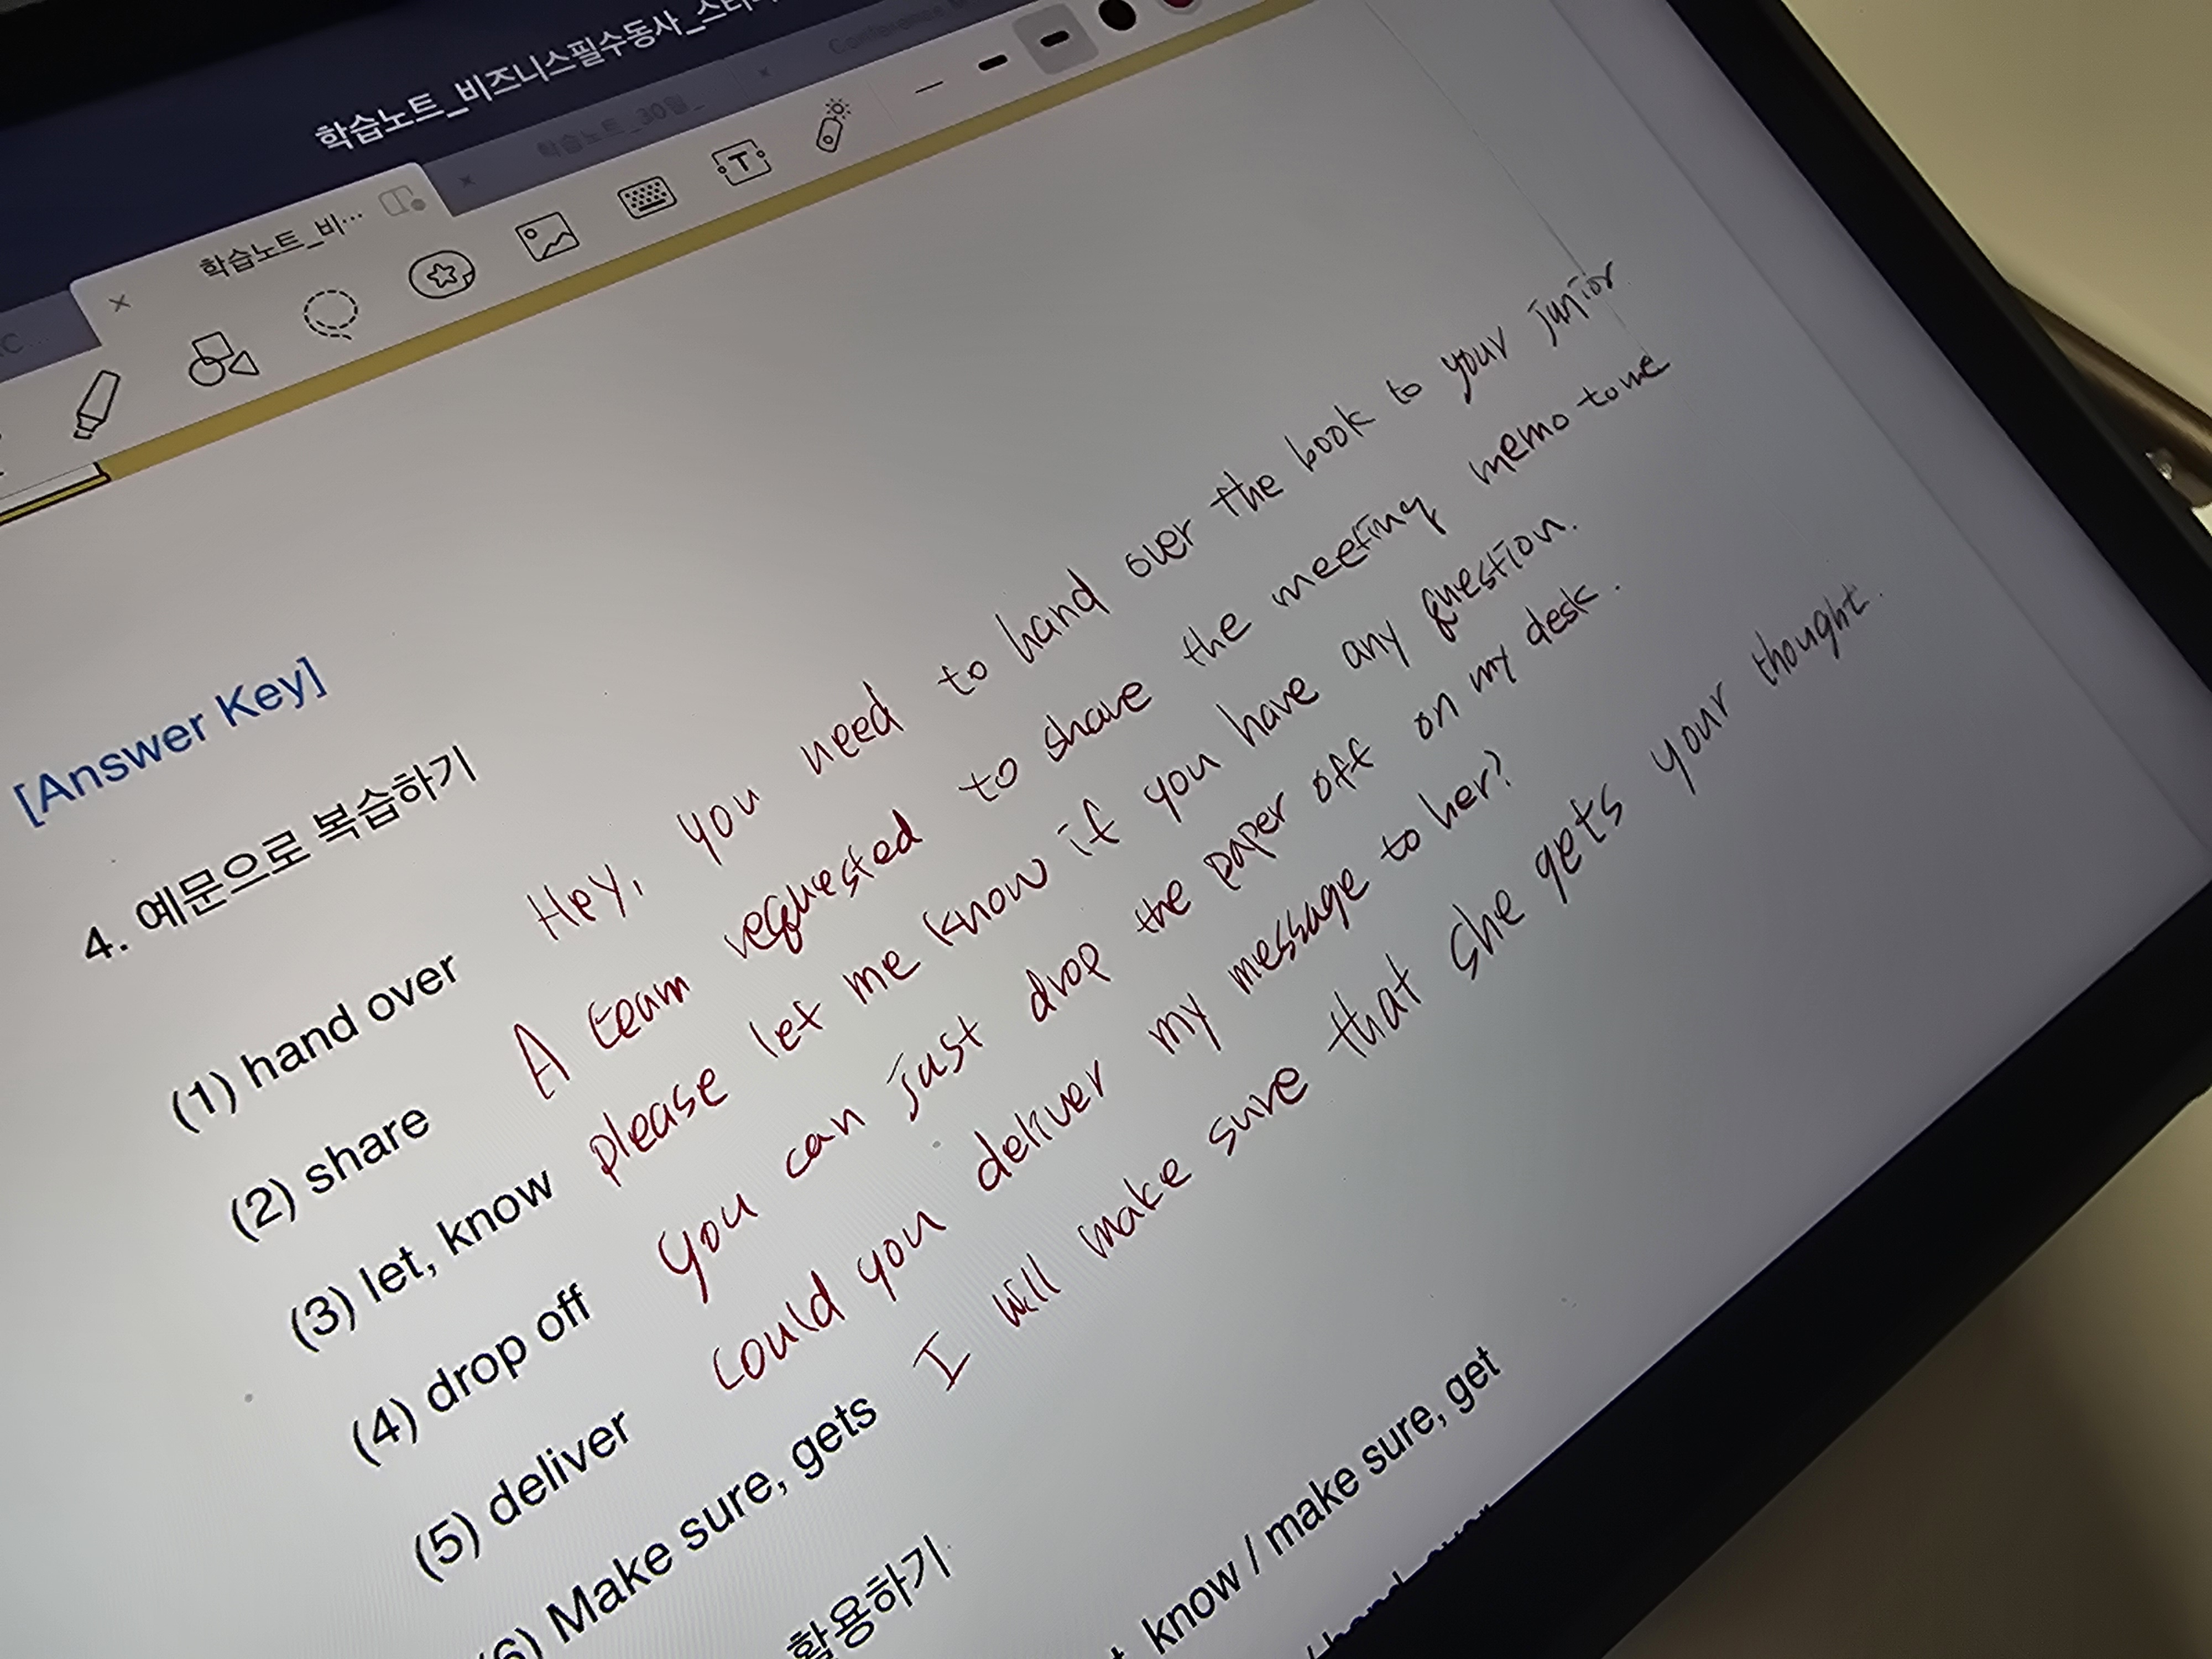 학습노트_비즈니스필수동사_스터디
학습노트_비…
학습노트_30일_
Conference
[Answer Key]
4. 예문으로 복습하기
(1) hand over Hey, you need to hand over the book to your junior
(2) share A team requested to share the meeting memo to me
(3) let, know please let me know if you have any question.
(4) drop off you can just drop the paper off on my desk.
(5) deliver could you deliver my message to her?
(6) Make sure, gets I will make sure that she gets your thought.
활용하기
know / make sure, get